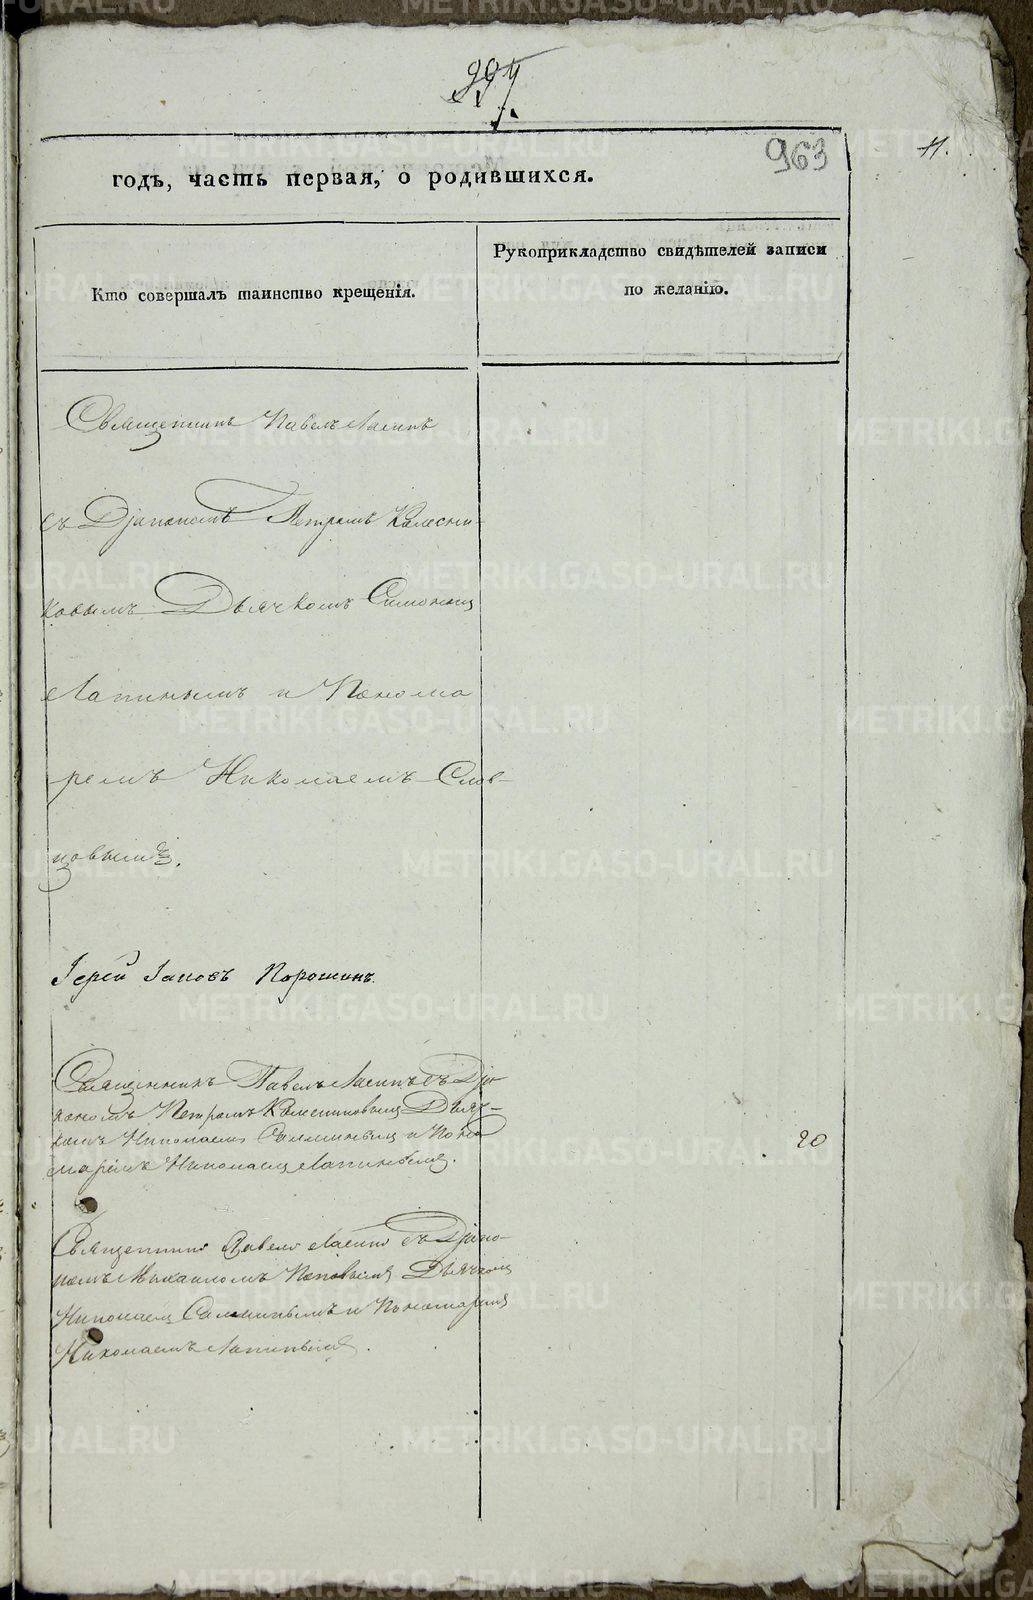 997.
963
11.
годъ, часть первая, о родившихся.
Кто совершалъ таинство крещенія.
Рукоприкладство свидѣтелей записи
по желанію.
Священникъ Павелъ
съ Діакономъ Петромъ Колесни-
ковымъ Дьячкомъ Симономъ
Лапинымъ и Понома
ремъ Николаемъ Слов-
цовымъ.
Іерей Іаковъ Порошинъ.
Священникъ Павелъ съ Діа
кономъ Петромъ Колесниковымъ Дьяч-
комъ Николаемъ и Поно
маремъ Николаемъ Лапинымъ.
20
Священникъ Павелъ съ Діако-
номъ Михаиломъ Поповымъ Дьячкомъ
Николаемъ и Пономаремъ
Николаемъ Лапинымъ.
METRIKI.GASO-URAL.RU